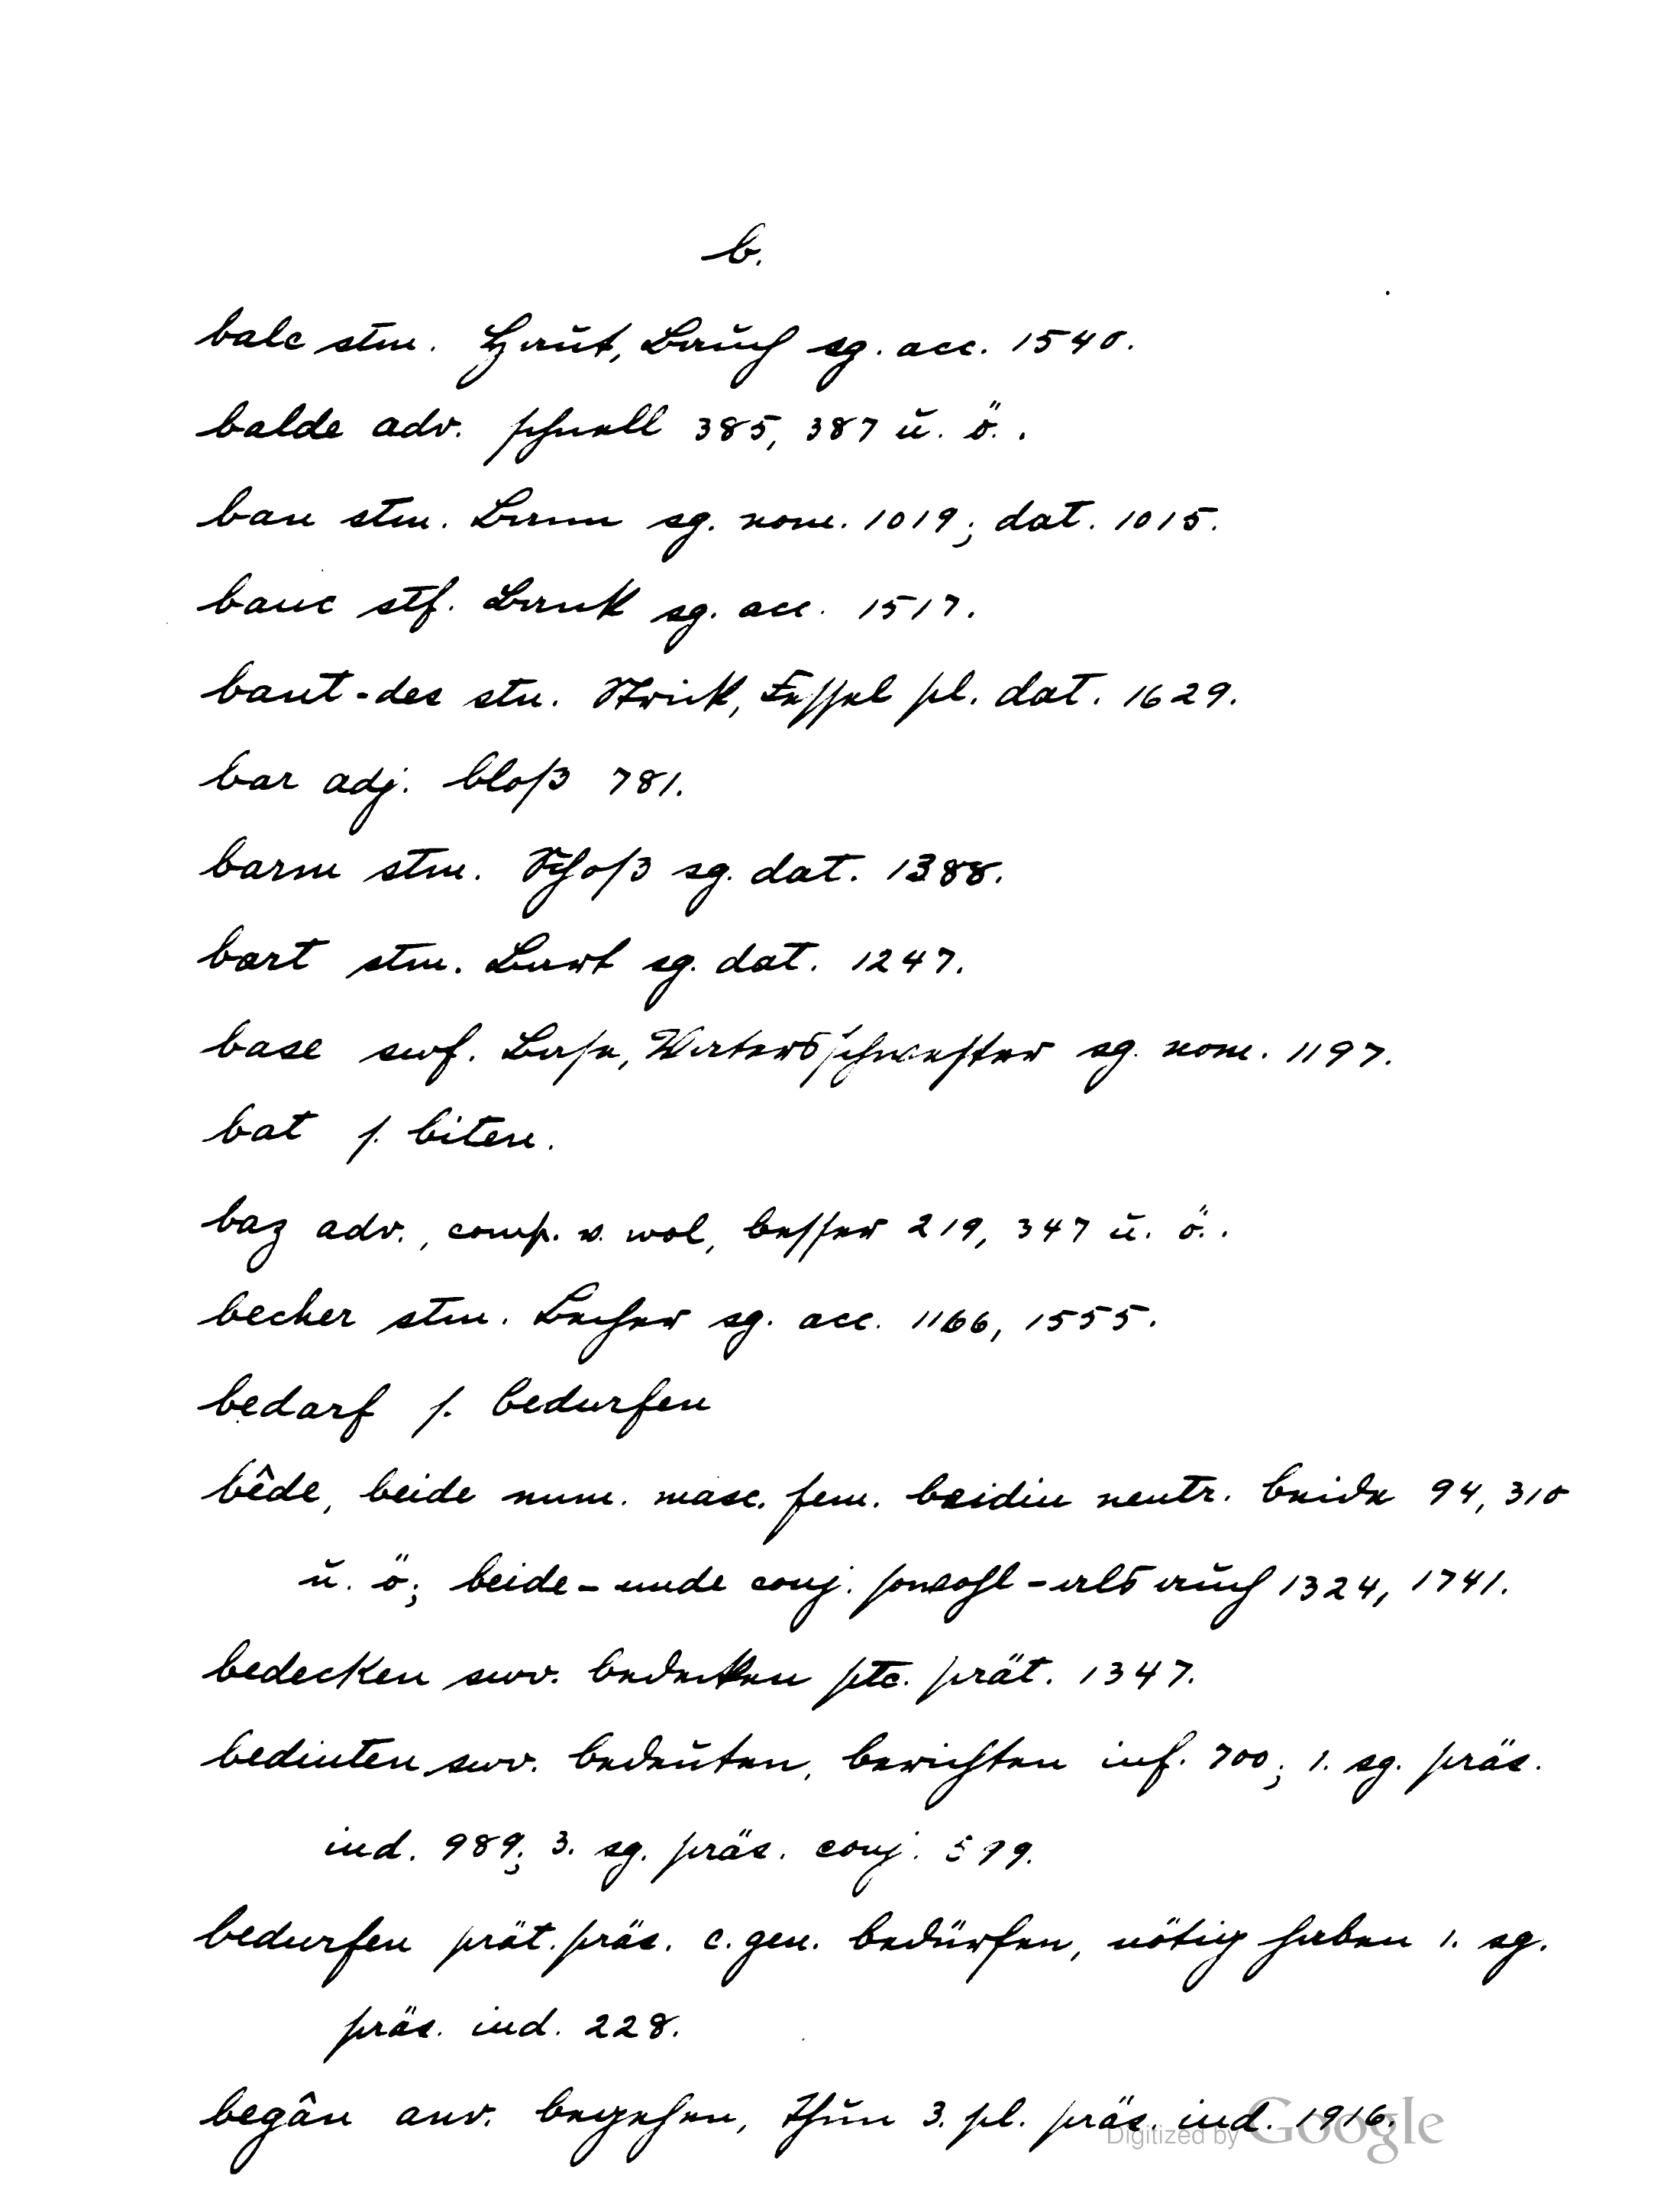 b.
balc stm. Haut, Bauch sg. acc. 1540.
balde adv. schnell 385, 387 u. ö..
ban stm. Bann sg. nom. 1019; dat. 1015.
banc stf. Bank sg. acc. 1517.
bant-des stn. Strick, Fessel pl. dat. 1629.
bar adj. bloß 781.
barm stm. Schoß sg. dat. 1388.
bart stm. Bart sg. dat. 1247.
base swf. Base, Vatersschwester sg. nom. 1197.
bat s. biten.
baz adv., comp. v. wol, besser 219, 347 u. ö..
becher stm. Becher sg. acc. 1166, 1555.
bedarf s. bedurfen
bêde, beide num. masc. fem. beidiu neutr. beide 94, 310
u. ö; beide-unde conj. sowohl-als auch 1324, 1741.
bedecken swv. bedecken ptc. prät. 1347.
bediuten swv. bedeuten, berichten inf. 700; 1. sg. präs.
ind. 989; 3. sg. präs. conj. 599.
bedurfen prät. präs. c. gen. bedürfen, nötig haben 1. sg.
präs. ind. 228.
begân anv. begehen, thun 3. pl. präs. ind. 1916.
Digitized by Google